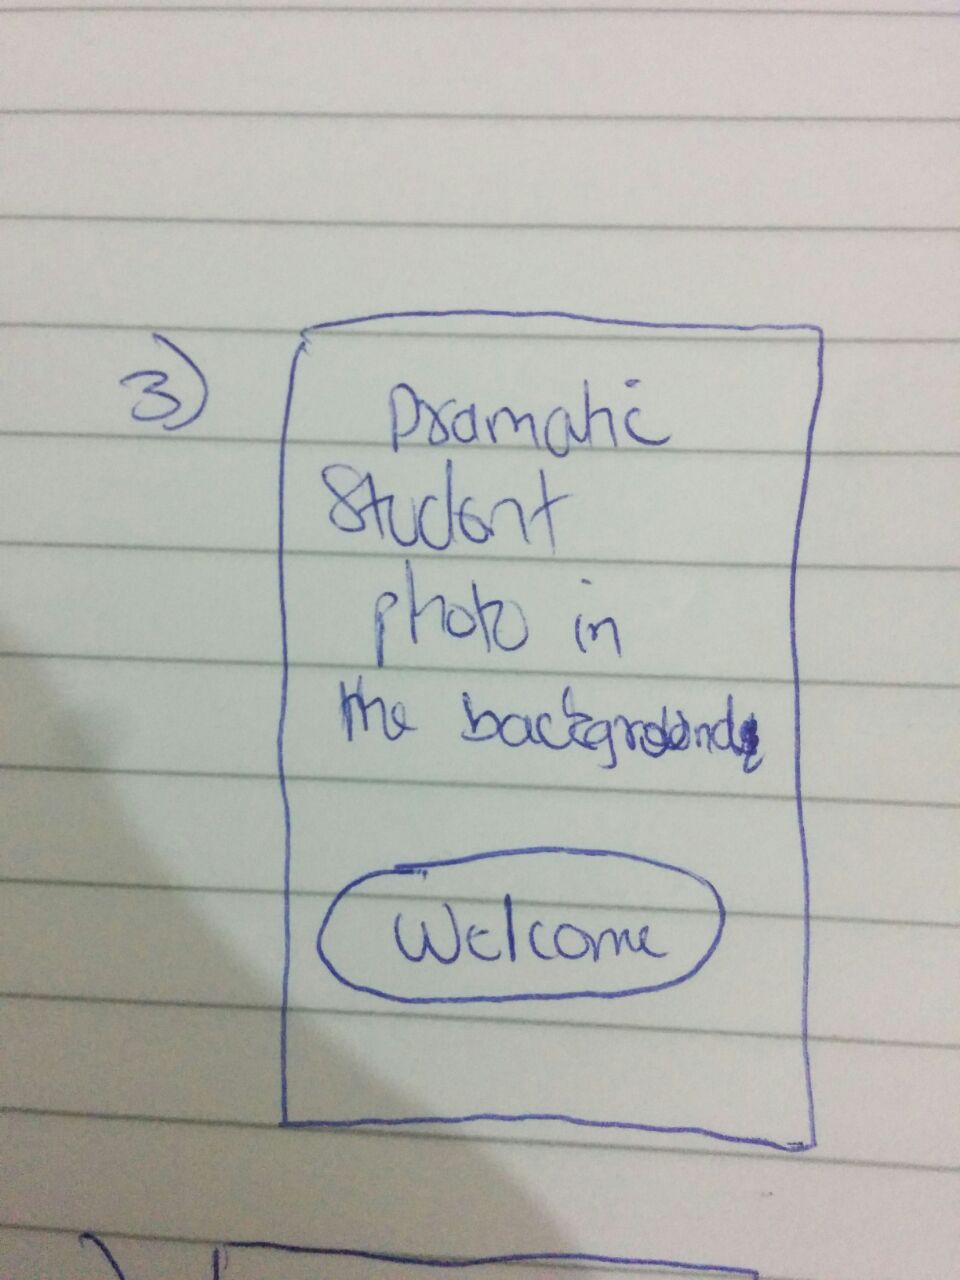 3)
Dramatic
Student
photo in
the background
Welcome